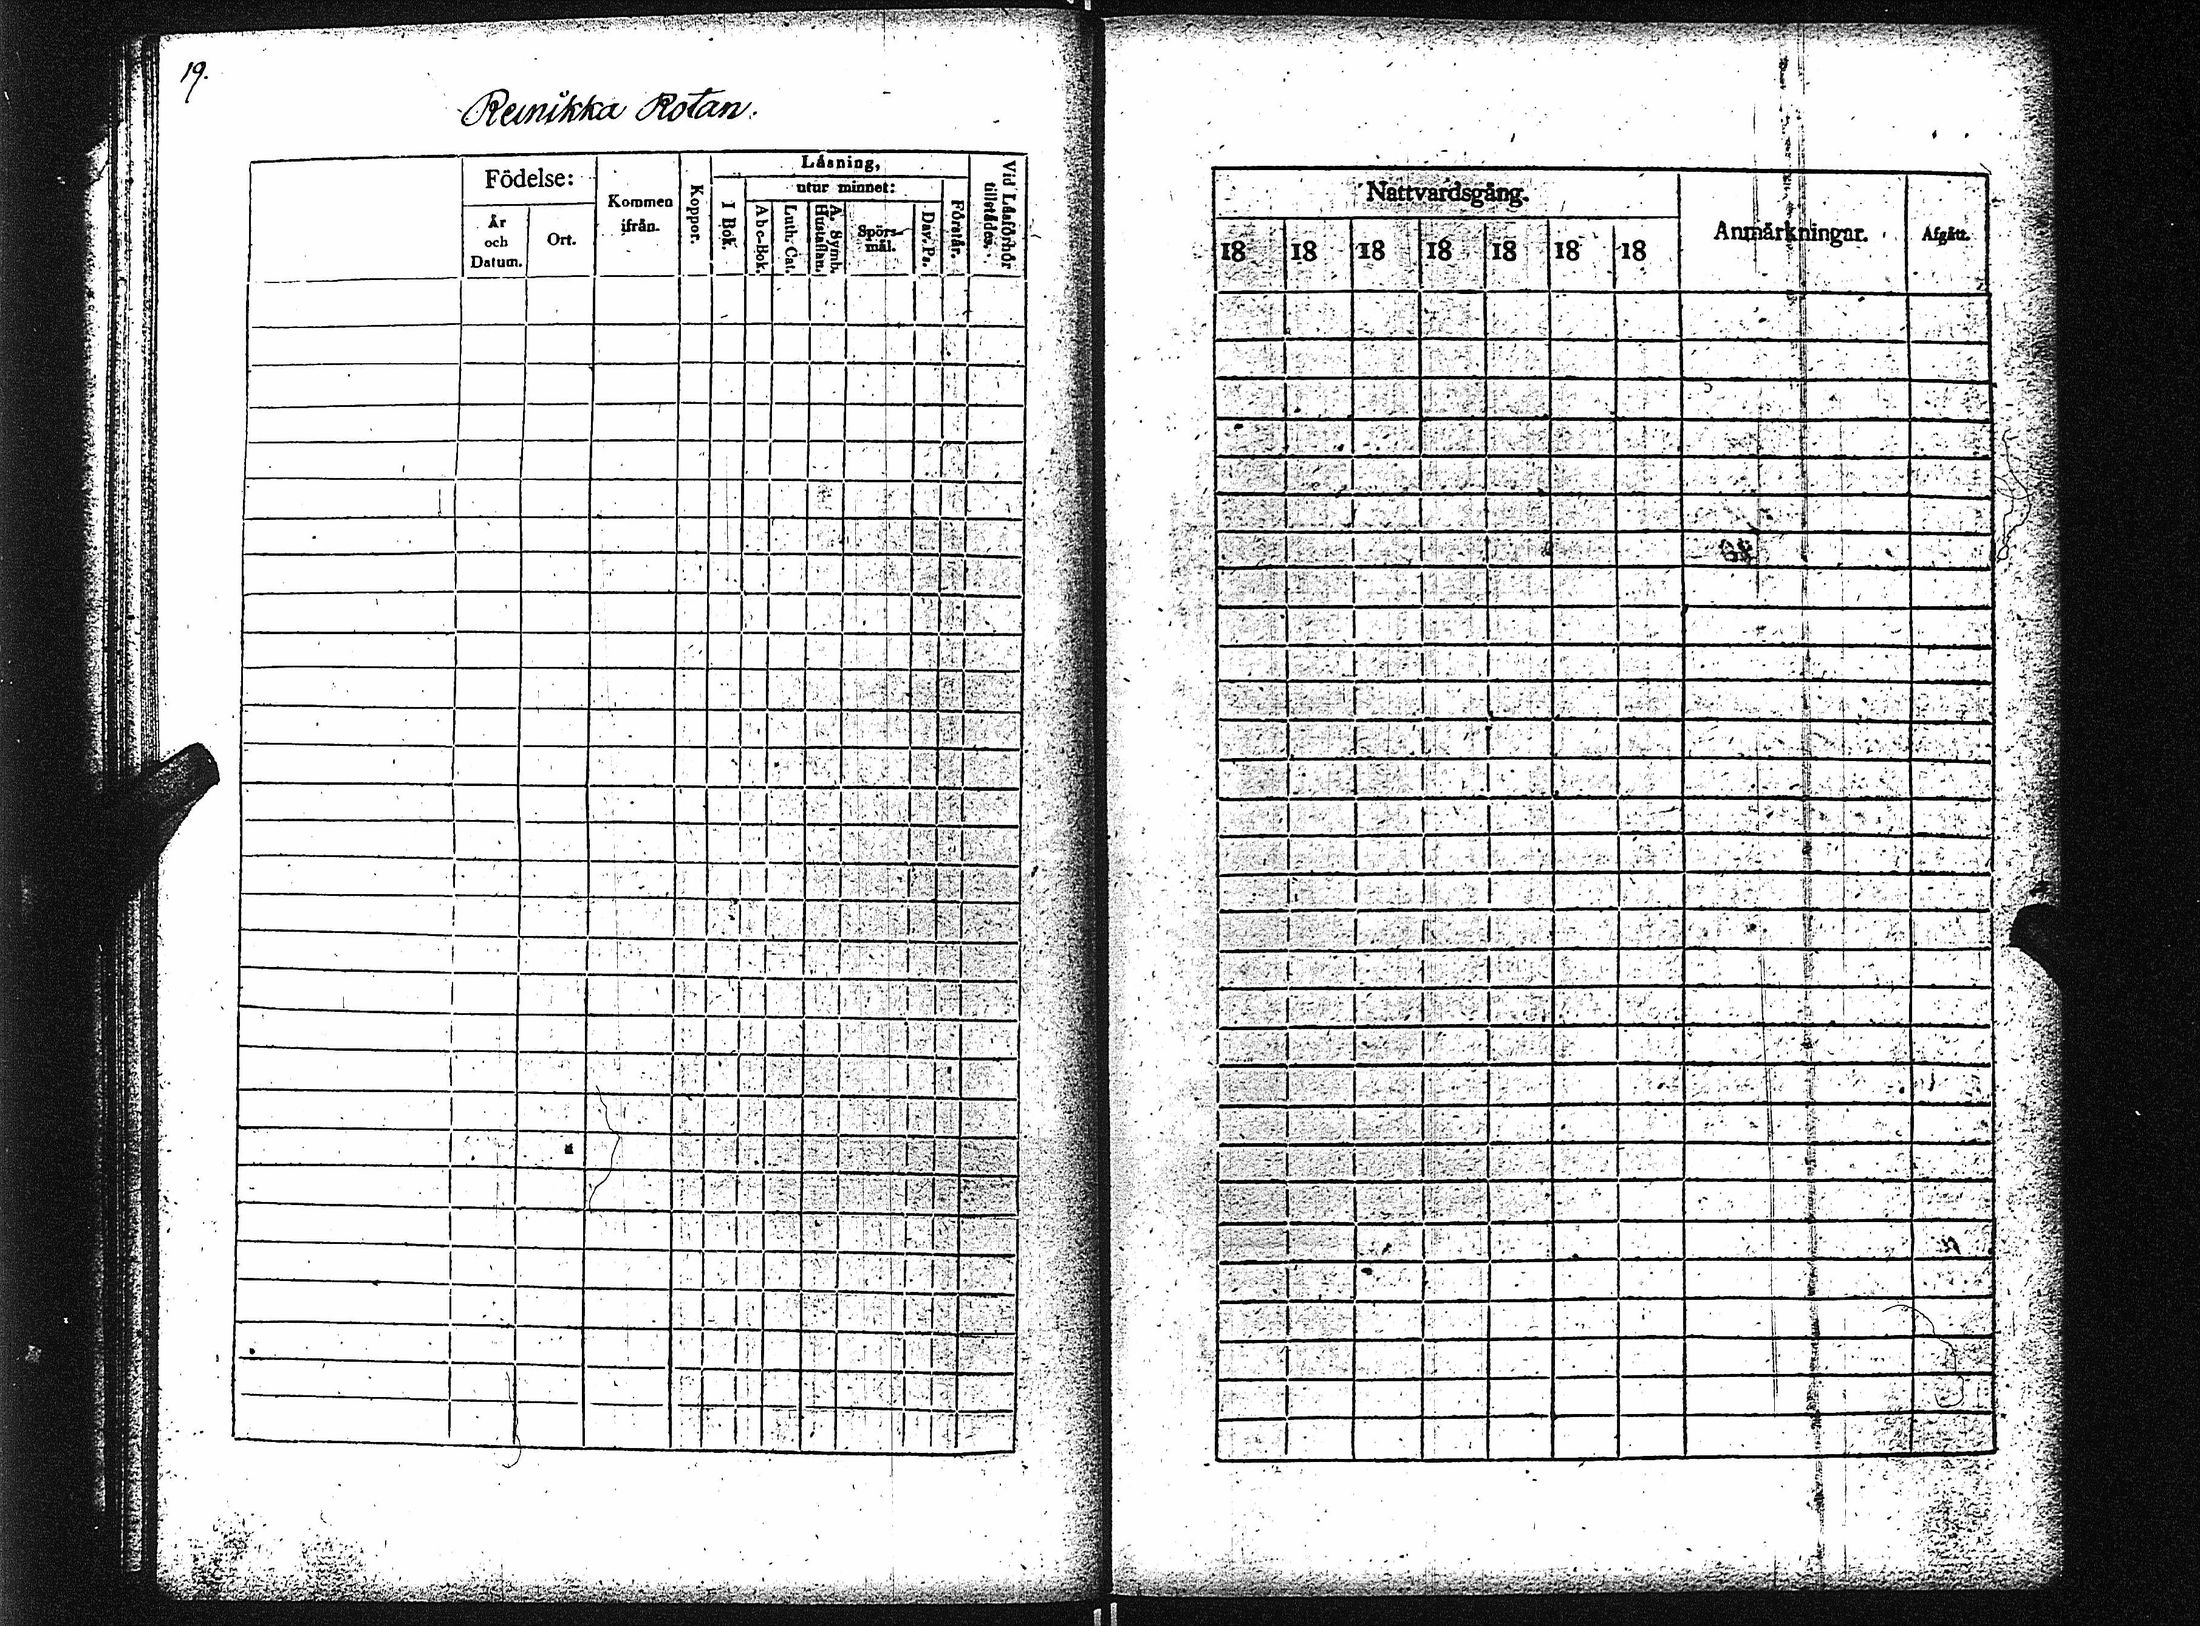 19.
Reinikka Rotan.
Födelse:
År och Datum.
Ort.
Kommen ifrån.
Koppor.
Läsning,
I Bok.
utur minnet:
Abc-Bok.
Luth. Cat.
A. Symb. Hustaflan.
Spörsmål.
Dav. Ps.
Förstår.
Vid Läsförhör tillstädes.
Nattvardsgång.
18 18 18 18 18 18 18
Anmärkningar.
Afgått.